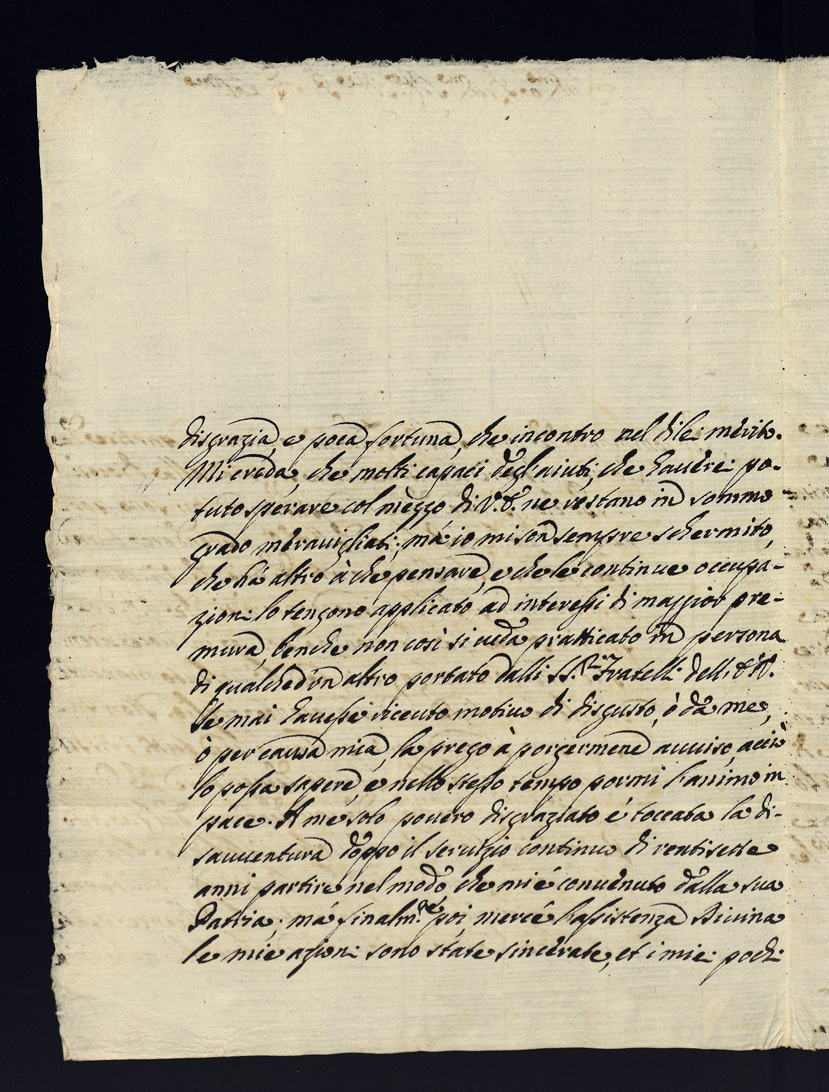 disgrazia, e poca fortuna, che incontro nel di lei merito.
Mi creda, che molti capaci degl'aiuti, che havere: po-
tuto sperare col mezzo di V.S. ne restano in sommo
grado meravigliati; má io mi son sempre schermito,
che há altro à che pensare, e che le continue occupa-
zioni lo tengono applicato ad interessi di maggior pre-
mura, benche non così si veda pratticato in persona
di qualched'un altro portato dalli SS.ri Fratelli dell.
Se mai havesse ricevuto motivo di disgusto, ò da me,
ò per causa mia, la prego à porgermene avviso, acciò
lo possa sapere, e nello stesso tempo pormi l'animo in
pace. A me solo povero disgraziato é toccata la di-
savventura doppo il servizio continuo di ventisette
anni partire nel modo che mi é convenuto dalla sua
Patria; má finalm.te poi, mercé l'assistenza Divina
le mie azioni sono state sincerate, et i miei pochi